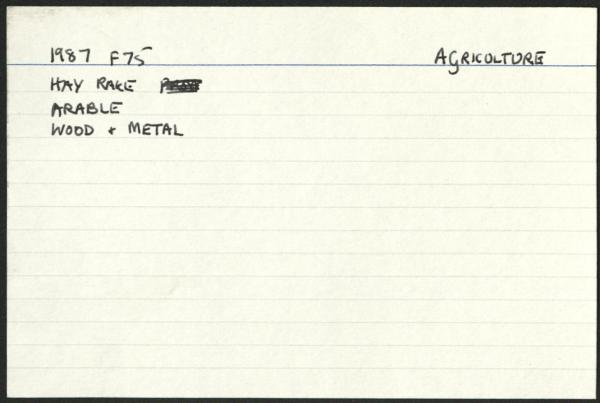 1987 F75 AGRICOLTURE
HAY RAKE
ARABLE
WOOD + METAL